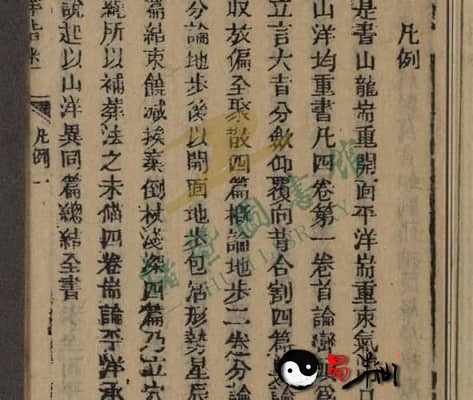 凡例
是書山龍耑重開面平洋耑重束氣
山洋均重書凡四卷第一卷首論巒
立言大旨分斂仰覆向背合割四篇
收放偏全聚散四篇概論地步二卷分論
分論地步後以開面地步包括形勢星辰
篇結束饒减挨棄倒杖淺深四篇乃立穴
繞所以補葬法之未備四卷耑論平洋承
說起以山洋異同篇總結全書
指迷 凡例 一
圖書館
LIBRARY